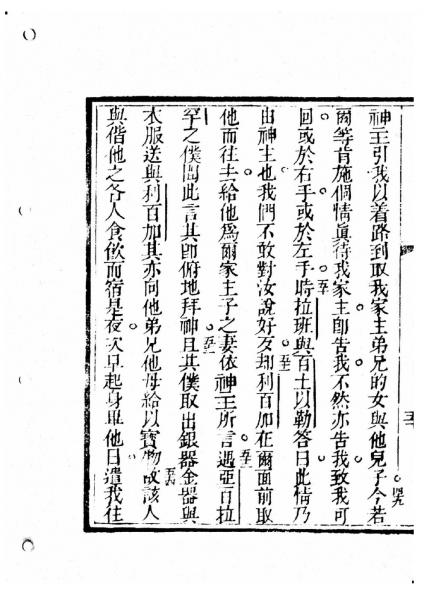 神主引我以着路到取我家主弟兄的女與他兒子今若
爾等肯施個情眞待我家主卽告我不然亦告我致我可
回或於右手或於左手時拉班與百土以勒答曰此情乃
由神主也我們不敢對汝說好歹却利百加在爾面前取
他而往去給他爲爾家主子之妻依神主所言遇亞百拉
罕之僕聞此言其卽俯地拜神且其僕取出銀器金器與
衣服送與利百加其亦向他弟兄他母給以寶物故該人
與偕他之各人食飮而宿是夜次早起身畢他曰遣我往